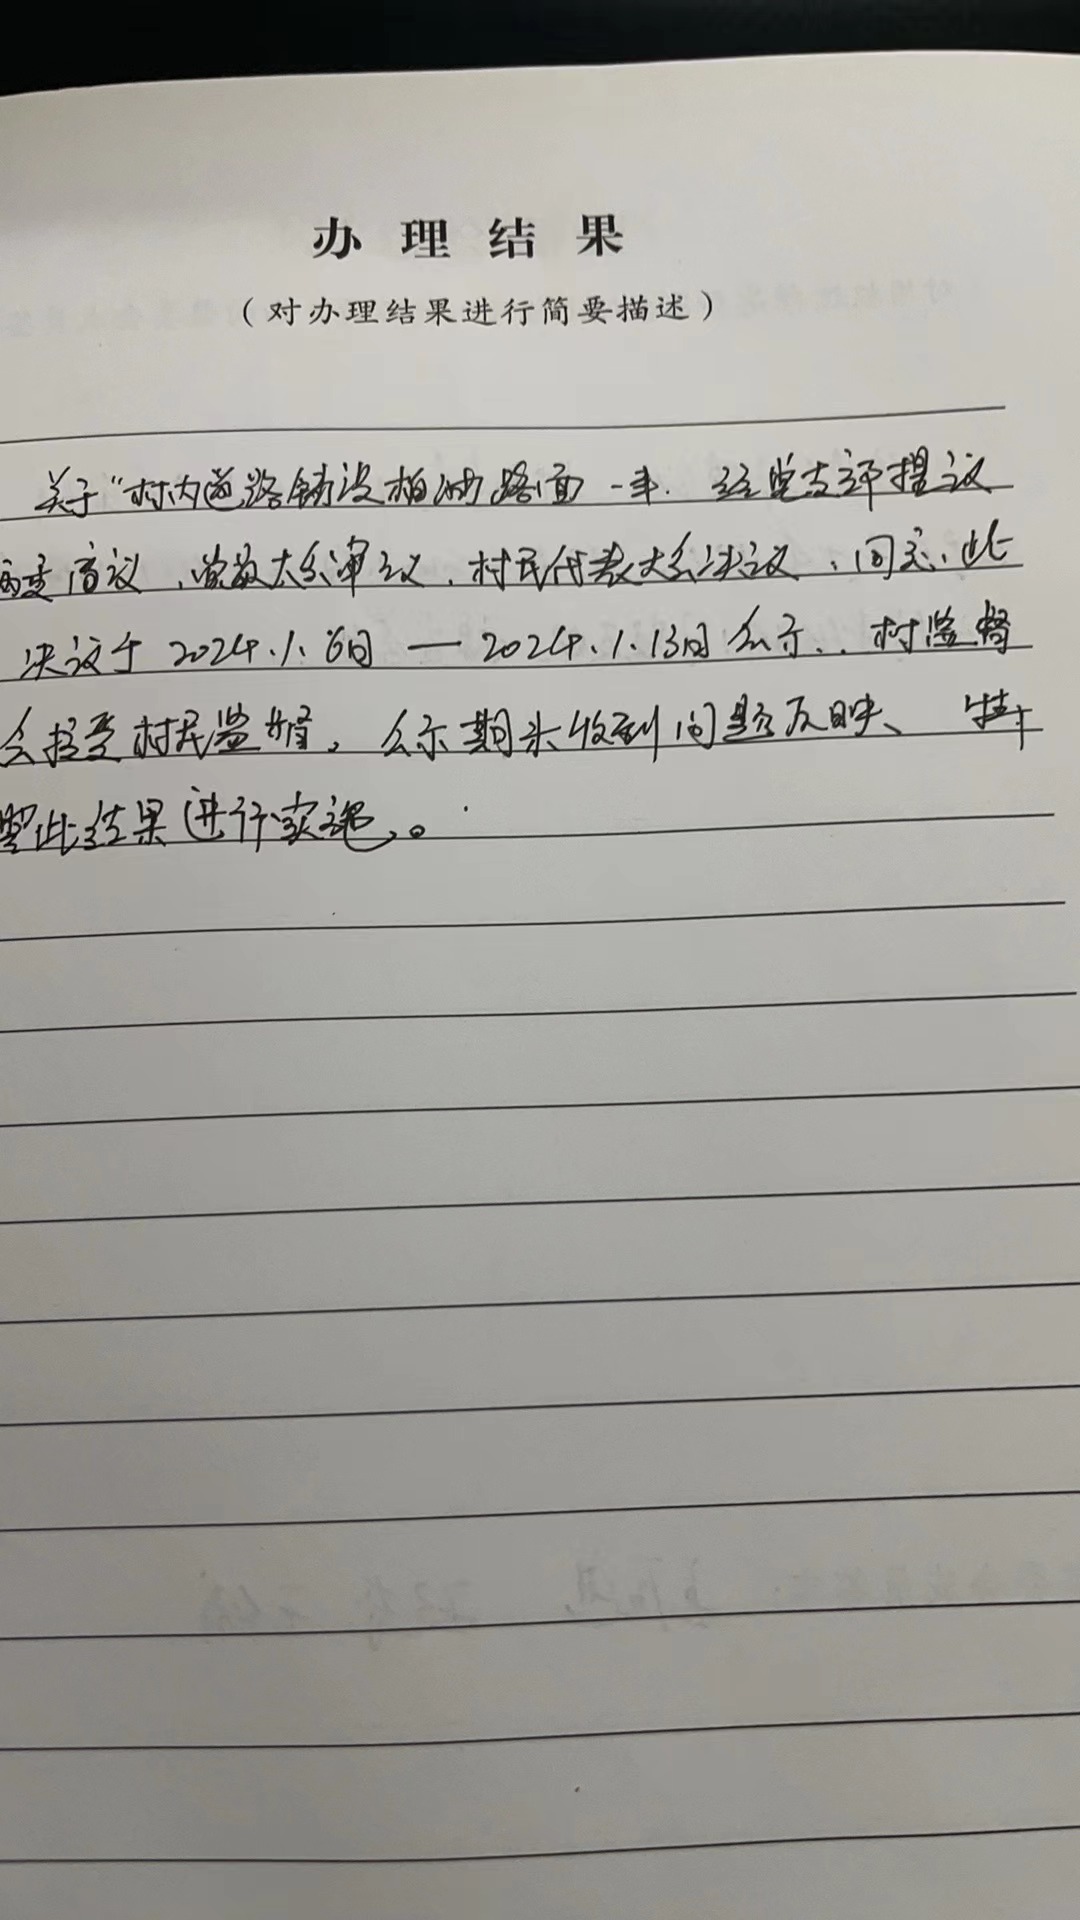 办理结果
（对办理结果进行简要描述）
关于“村内道路铺设柏油路面一事. 经党支部提议
两委商议、党员大会审议、村民代表大会决议，同意，此
决议于2024.1.6日—2024.1.13日公示，村监督
会接受村民监督，公示期未收到问题反映、特
此结果进行实施。